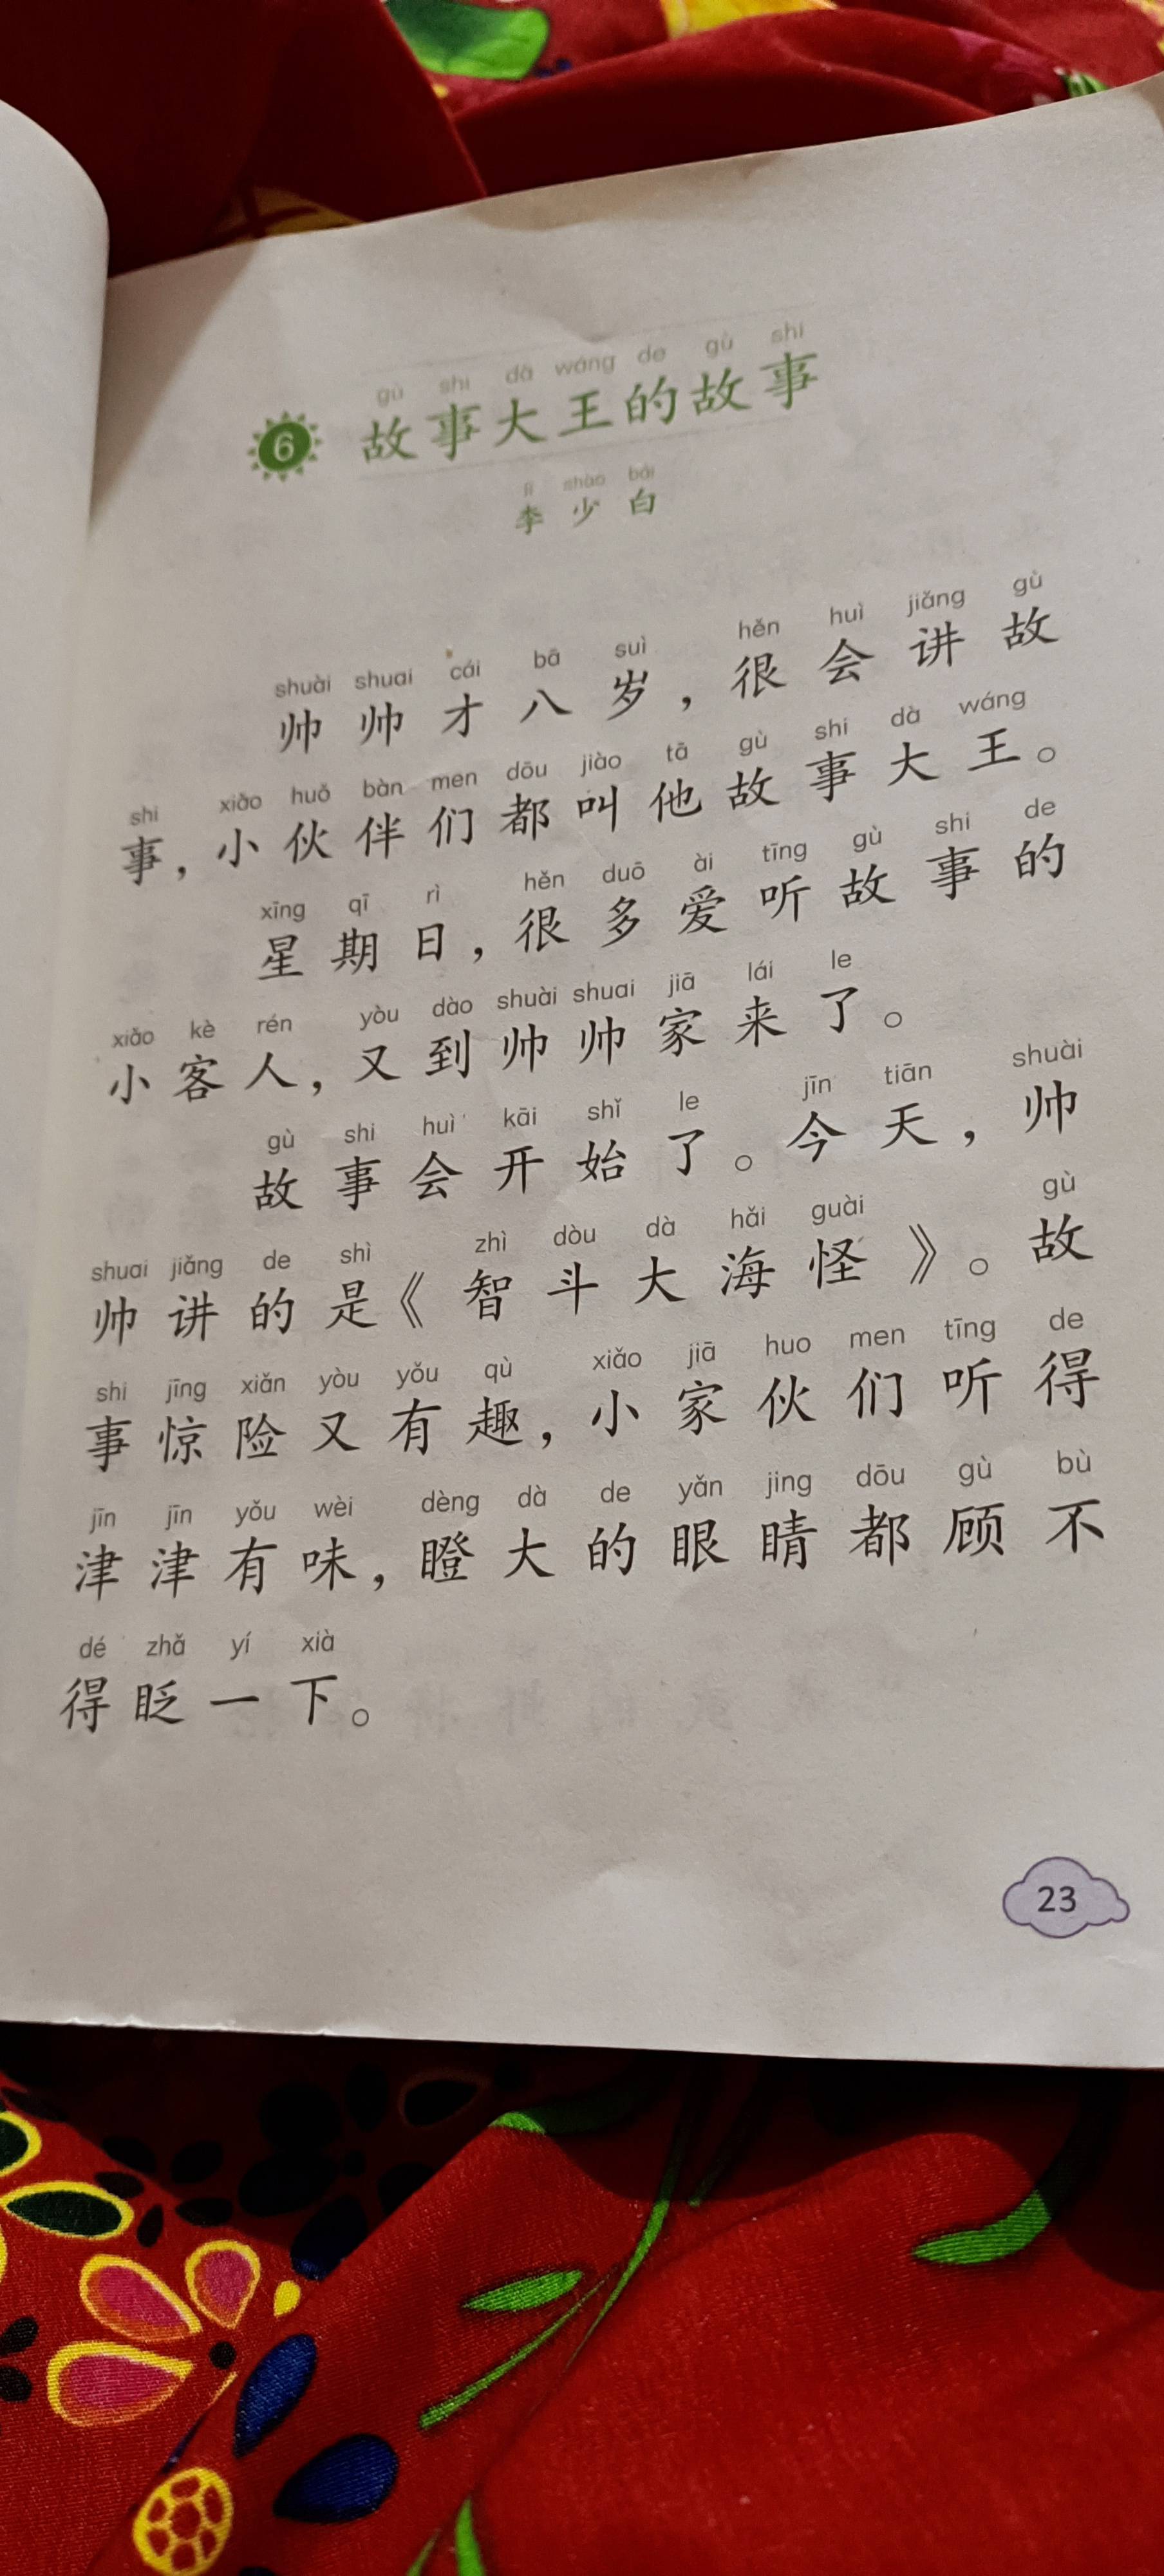 gù shi dà wáng de gù shi
6 故事大王的故事
lǐ shào bái
李少白
shuài shuai cái bā suì hěn huì jiǎng gù
帅帅才八岁，很会讲故
shi xiǎo huǒ bàn men dōu jiào tā gù shi dà wáng
事，小伙伴们都叫他故事大王。
xīng qī rì hěn duō ài tīng gù shi de
星期日，很多爱听故事的
xiǎo kè rén yòu dào shuài shuai jiā lái le
小客人，又到帅帅家来了。
gù shi huì kāi shǐ le jīn tiān shuài
故事会开始了。今天，帅
shuai jiǎng de shì zhì dòu dà hǎi guài gù
帅讲的是《智斗大海怪》。故
shi jīng xiǎn yòu yǒu qù xiǎo jiā huo men tīng de
事惊险又有趣，小家伙们听得
jīn jīn yǒu wèi dèng dà de yǎn jing dōu gù bù
津津有味，瞪大的眼睛都顾不
dé zhǎ yí xià
得眨一下。
23